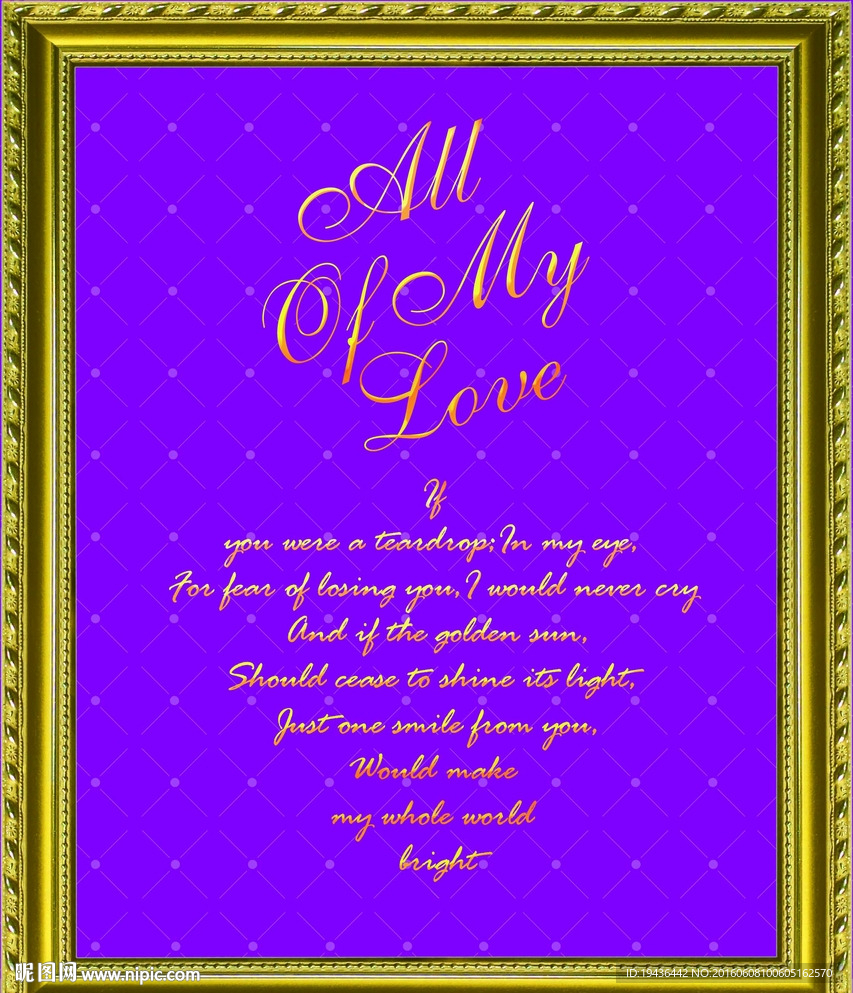 All
Of My
Love
If
you were a teardrop;In my eye,
For fear of losing you,I would never cry
And if the golden sun,
Should cease to shine its light,
Just one smile from you,
Would make
my whole world
bright
昵图网 www.nipic.com
ID:19436442 NO:20160608100605162570